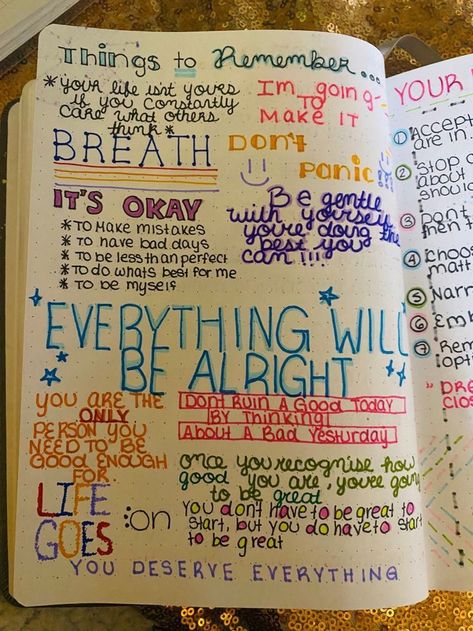 Things to Remember...
*your life isn't yours
if you constantly
care what others
think*
I'm going
TO
MAKE IT
BREATH
DON't
PANIC!
IT'S OKAY
* TO MAKE MISTAKES
* to have bad days
* To be less than perfect
* To do whats best for me
* to be myself
Be gentle
with yourself
you're doing the
best you
can!!!
EVERYTHING WILL
BE ALRIGHT
YOU ARE THE
ONLY
PERSON YOU
NEED TO BE
GOOD ENOUGH
FOR
DONT RUIN A GOOD TODAY
BY THINKING
ABOUT A BAD YESTURDAY
once you recognise how
good you are, you're going
to be great
LIFE
GOES
:on
You don't have to be great to
start, but you do have to start
to be great
YOU DESERVE EVERYTHING
YOUR
① ACCEPT
are in
② Stop
about
③ Dont
④ CHOOS
⑤ Narr
⑥ Emb
⑦ Rem
opti
" DRE
CLOS